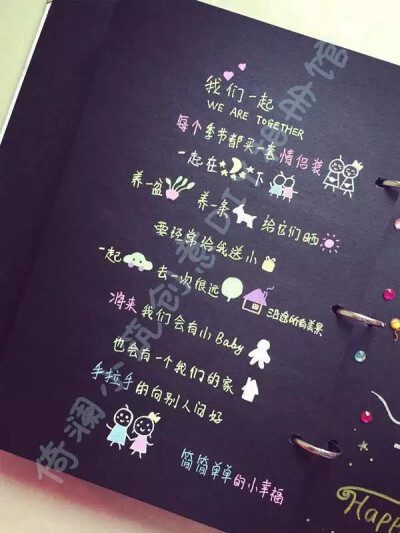 我们一起
WE ARE TOGETHER
每个季节都买一套情侣装
一起在下
养一盆 养一条 给它们晒
要经常给我送小
一起 去一次很远 沿途所有美景
将来我们会有小Baby
也会有一个我们的家
手拉手的向别人问好
简简单单的小幸福
Happ